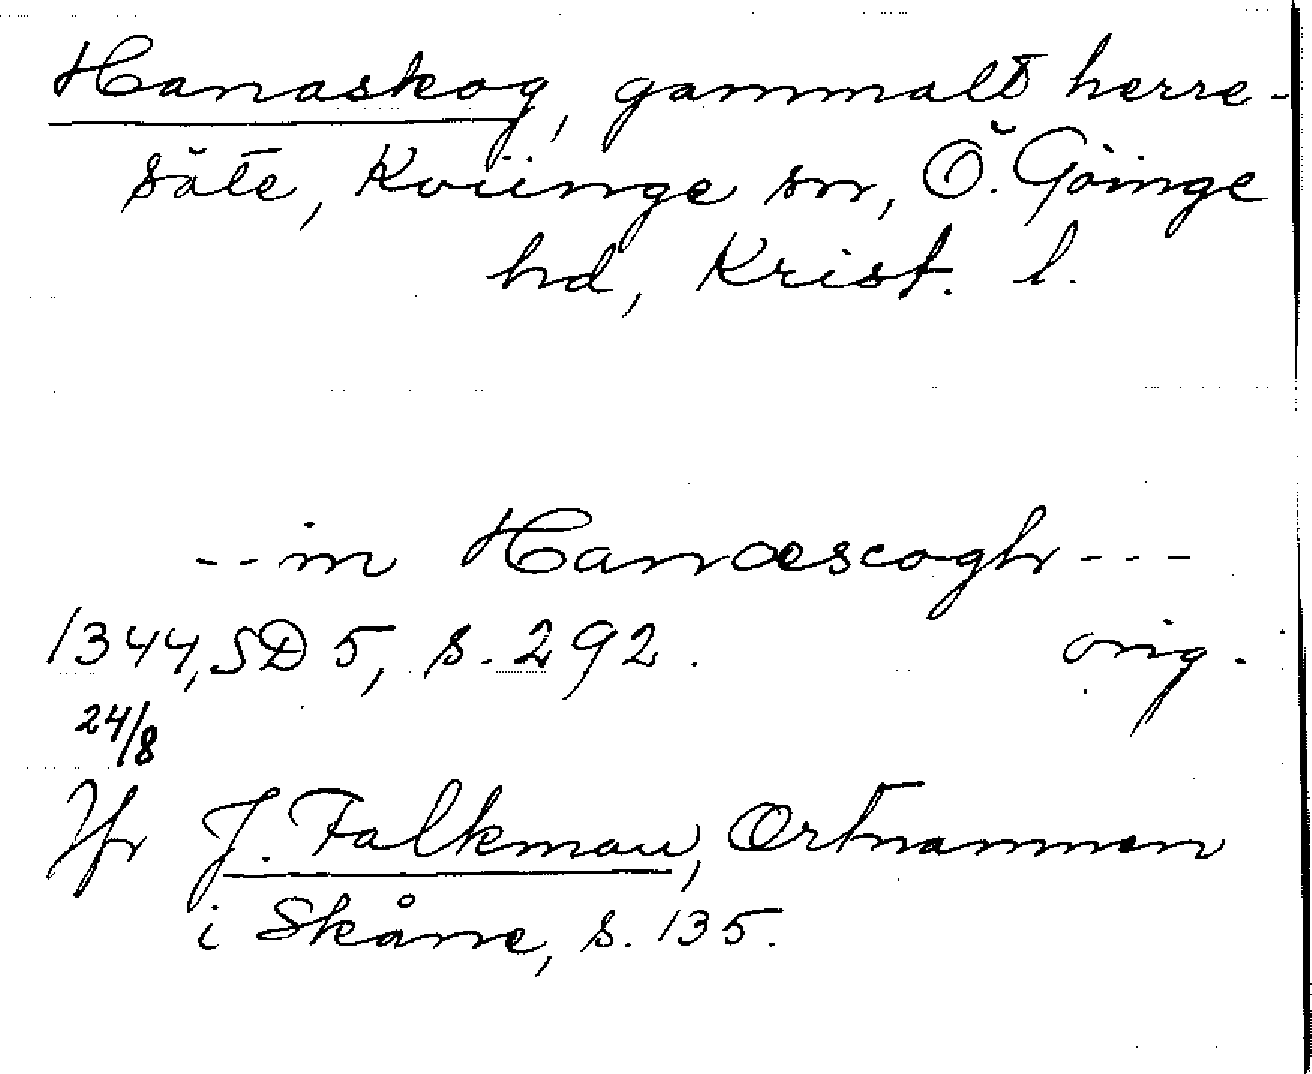 Hanaskog, gammalt herre-
säte, Kviinge sn, Ö. Göinge
hd, Krist. l.
--in Hanæscogh---
1344, SD 5, s. 292. orig.
24/8
Jfr J. Falkman, Ortnamnen
i Skåne, s. 135.